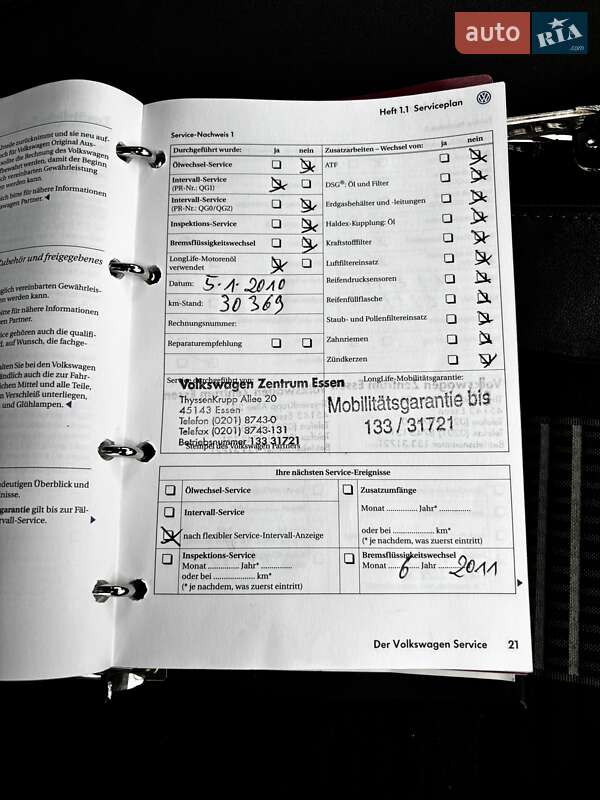 auto RIA.com
Heft 1.1 Serviceplan
hsele zurücknimmt und sie neu auf-
uch für Volkswagen Original Aus-
sollte die Rechnung des Volkswagen
fbewahrt werden, damit der Beginn
ch vereinbarten Gewährleistung
en werden kann.
ich bitte für nähere Informationen
swagen Partner.
Zubehör und freigegebenes
glich vereinbarten Gewährleis-
en werden kann.
bitte für nähere Informationen
en Partner.
ice gehören auch die qualifi-
, auf Wunsch, die fachge-
lten Sie bei den Volkswagen
tändlich auch die zur Fahr-
ichen Mittel und alle Teile,
en Verschleiß unterliegen,
und Glühlampen.
ndeutigen Überblick und
nisse.
garantie gilt bis zur Fäl-
rvall-Service.
Service-Nachweis 1
Durchgeführt wurde: ja nein
Ölwechsel-Service
Intervall-Service
(PR-Nr.: QG1)
Intervall-Service
(PR-Nr.: QG0/QG2)
Inspektions-Service
Bremsflüssigkeitswechsel
LongLife-Motorenöl
verwendet
Datum: 5.1.2010
km-Stand: 30 369
Rechnungsnummer:
Reparaturempfehlung
Zusatzarbeiten – Wechsel von: ja nein
ATF
DSG®: Öl und Filter
Erdgasbehälter und -leitungen
Haldex-Kupplung: Öl
Kraftstofffilter
Luftfiltereinsatz
Reifendrucksensoren
Reifenfüllflasche
Staub- und Pollenfiltereinsatz
Zahnriemen
Zündkerzen
Service durchgeführt von:
Volkswagen Zentrum Essen
ThyssenKrupp Allee 20
45143 Essen
Telefon (0201) 8743-0
Telefax (0201) 8743-131
Betriebsnummer 133 31721
Stempel des Volkswagen Partners
LongLife-Mobilitätsgarantie:
Mobilitätsgarantie bis
133 / 31721
Ihre nächsten Service-Ereignisse
Ölwechsel-Service
Intervall-Service
nach flexibler Service-Intervall-Anzeige
Zusatzumfänge
Monat .............. Jahr* ..............
oder bei .................... km*
(* je nachdem, was zuerst eintritt)
Inspektions-Service
Monat .............. Jahr* ..............
oder bei .................... km*
(* je nachdem, was zuerst eintritt)
Bremsflüssigkeitswechsel
Monat 6 Jahr 2011
Der Volkswagen Service 21